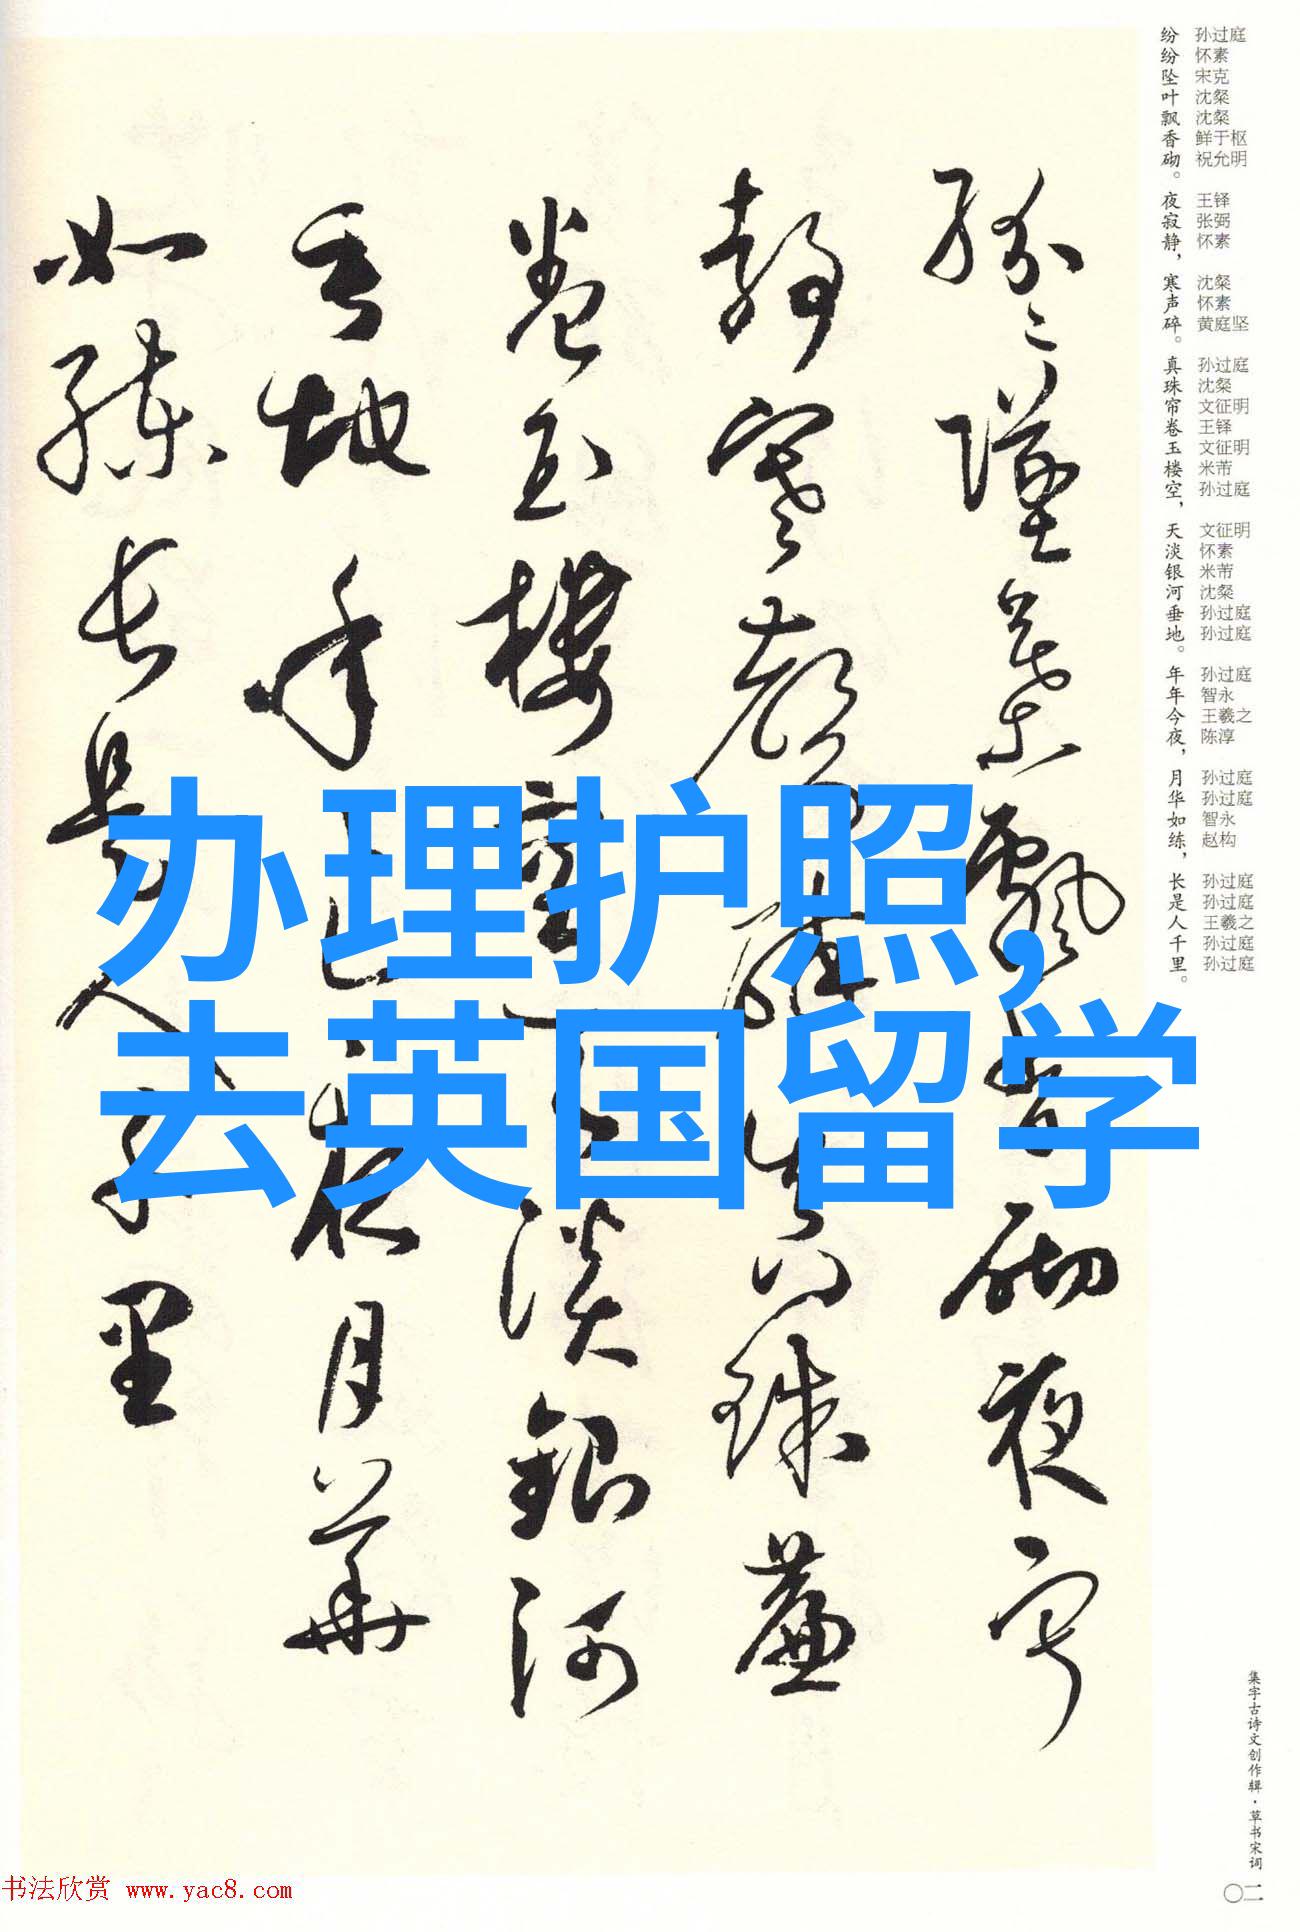 纷纷坠叶飘香砌。夜寂静，寒声碎。真珠帘卷玉楼空，天淡银河垂地。年年今夜，月华如练，长是人千里。
孙过庭
怀素
宋克
沈粲
沈粲
鲜于枢
祝允明
王铎
张弼
怀素
沈粲
怀素
黄庭坚
孙过庭
沈粲
文征明
王铎
文征明
米芾
孙过庭
文征明
怀素
米芾
沈粲
孙过庭
孙过庭
孙过庭
智永
王羲之
陈淳
孙过庭
孙过庭
智永
赵构
孙过庭
孙过庭
王羲之
孙过庭
孙过庭
紛〻墜葉飄香砌夜寂
靜寒聲碎真珠簾
卷玉樓空天淡銀河
垂地年〻今夜月華
如練長是人千里
办理护照,
去英国留学
集字古诗文创作辑·草书宋词
〇二
书法欣赏 www.yac8.com